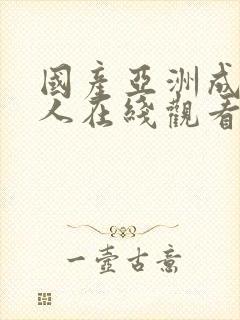 國產亞洲成
人在綫觀看
一壺古意